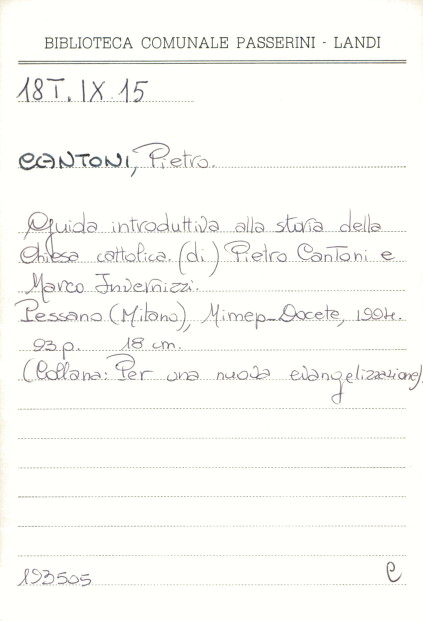 BIBLIOTECA COMUNALE PASSERINI - LANDI
18T. IX. 15
CANTONI, Pietro.
Guida introduttiva alla storia della
Chiesa cattolica. (di) Pietro Cantoni e
Marco Invernizzi.
Pessano (Milano), Mimep-Docete, 1994.
93 p. 18 cm.
(Collana: Per una nuova evangelizzazione).
193505 C